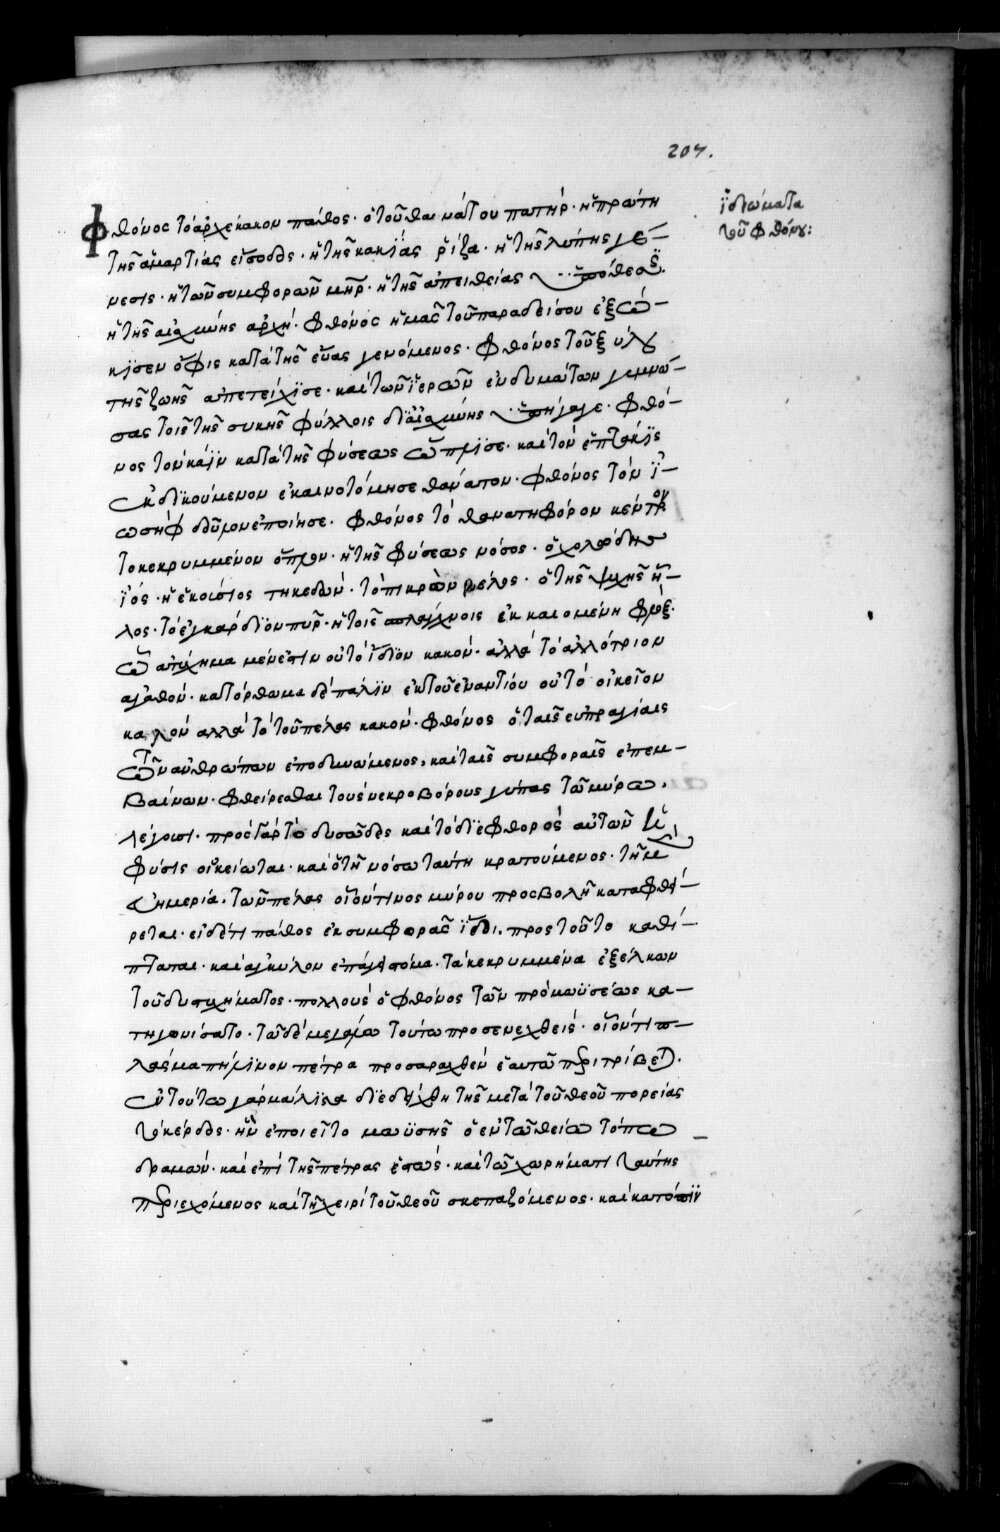 207.
ἰδιώματα
τοῦ φθόνου:
Φθόνος τὸ ἀρχέκακον πάθος· ὁ τοῦ θανάτου πατήρ· ἡ πρώτη
τῆς ἁμαρτίας εἴσοδος· ἡ τῆς κακίας ῥίζα· ἡ τῆς λύπης γέ-
νεσις· ἡ τῶν συμφορῶν μηρ· ἡ τῆς ἀπειθείας ὑπόθεσις·
ἡ τῆς αἰσχύνης ἀρχή· φθόνος ἡμᾶς τοῦ παραδείσου ἐξώ-
κισεν ὄφις κατὰ τῆς εὔας γενόμενος· φθόνος τοῦ ξύλου
τῆς ζωῆς ἀπετείχισε· καὶ τῶν ἱερῶν ἐνδυμάτων γυμνώ-
σας τοῖς τῆς συκῆς φύλλοις δι' αἰσχύνης ὑπήγαγε· φθό-
νος τὸν κάϊν κατὰ τῆς φύσεως ὥπλισε· καὶ τὸν ἑπτάκις
ἐκδικούμενον ἐκαινοτόμησε θάνατον· φθόνος τὸν ἰ-
ωσὴφ δοῦλον ἐποίησε· φθόνος τὸ θανατηφόρον κέντρον
τὸ κεκρυμμένον ὅπλον· ἡ τῆς φύσεως νόσος· ὁ χολώδης
ἰός· ἡ ἑκούσιος τηκεδών· τὸ πικρὸν βέλος· ὁ τῆς ψυχῆς ἧ-
λος· τὸ ἐγκάρδιον πῦρ· ἡ τοῖς σπλάγχνοις ἐκκαιομένη φλόξ·
ᾧ ἀτύχημα μέν ἐστιν οὐ τὸ ἴδιον κακόν· ἀλλὰ τὸ ἀλλότριον
ἀγαθόν· κατόρθωμα δὲ πάλιν ἐκ τοῦ ἐναντίου οὐ τὸ οἰκεῖον
καλὸν ἀλλὰ τὸ τοῦ πέλας κακόν· φθόνος ὁ ταῖς εὐπραγίαις
τῶν ἀνθρώπων ἐποδυνώμενος, καὶ ταῖς συμφοραῖς ἐπεμ-
βαίνων· φθείρεσθαι τοὺς νεκροβόρους γύπας τῷ μύρῳ.
λέγουσι· πρὸς γὰρ τὸ δυσῶδες καὶ τὸ διεφθορὸς αὐτῶν ἡ
φύσις οἰκείωται· καὶ ὁ τῇ νόσῳ ταύτη κρατούμενος· τῇ μὲν
εὐημερία· τῶν πέλας οἷόν τινος μύρου προσβολῇ καταφθεί-
ρεται· εἰ δέ τι πάθος ἐκ συμφορᾶς ἴδοι. πρὸς τοῦτο καθί-
πταται· καὶ ἀγκύλον ἐπάγει στόμα· τὰ κεκρυμμένα ἐξέλκων
τοῦ δυστυχήματος· πολλοὺς ὁ φθόνος τῶν πρὸ μωϋσέως κα-
τηγωνίσατο· τῷ δὲ μεγάλω τούτω προσενεχθείς· οἷόν τι π-
λάσμα πήλινον πέτρα προσαραχθὲν ἑαυτῷ περιτρίβεται·
ἐν τούτω γὰρ μάλιστα διεδείχθη τῆς μετὰ τοῦ θεοῦ πορείας
τὸ κέρδος· ἣν ἐποιεῖτο μωϋσῆς ὁ ἐν τῷ θείω τόπω
δραμών· καὶ ἐπὶ τῆς πέτρας ἑστώς· καὶ τῷ χωρήματι ταύτης
περιεχόμενος καὶ τῇ χειρὶ τοῦ θεοῦ σκεπαζόμενος· καὶ κατόπιν